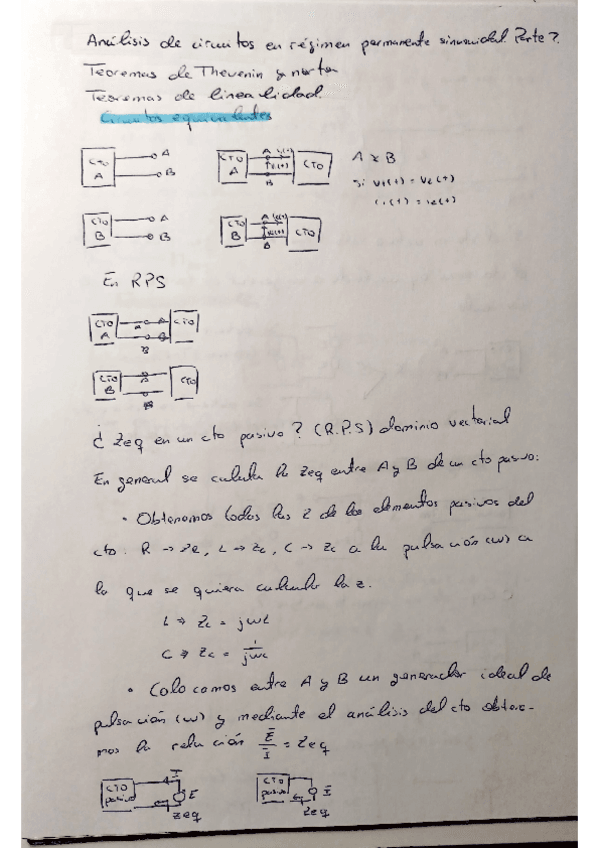 Análisis de circuitos en régimen permanente sinusoidal. Parte 7.
Teoremas de Thevenin y norton
Teoremas de linealidad.
Circuitos equivalentes
CTO A A B
CTO A A B CTO
A y B
si v1(t) = v2(t)
i1(t) = i2(t)
CTO B A B
CTO B A B CTO
En RPS
CTO A A B CTO
CTO B CTO
¿ Zeq en un cto pasivo? (R.P.S) dominio vectorial
En general se calcula la Zeq entre A y B de un cto pasivo:
• Obtenemos todas las Z de los elementos pasivos del
cto. R → ZR, L → ZL, C → Zc a la pulsación (w) a
la que se quiera calcular la z.
L ⇒ ZL = jwL
C ⇒ Zc = 1/jwc
• Colocamos entre A y B un generador ideal de
pulsación (w) y mediante el análisis del cto obtene-
mos la relación Ē/Ī = Zeq
CTO pasivo Ī Ē Zeq
CTO pasivo Ī Zeq